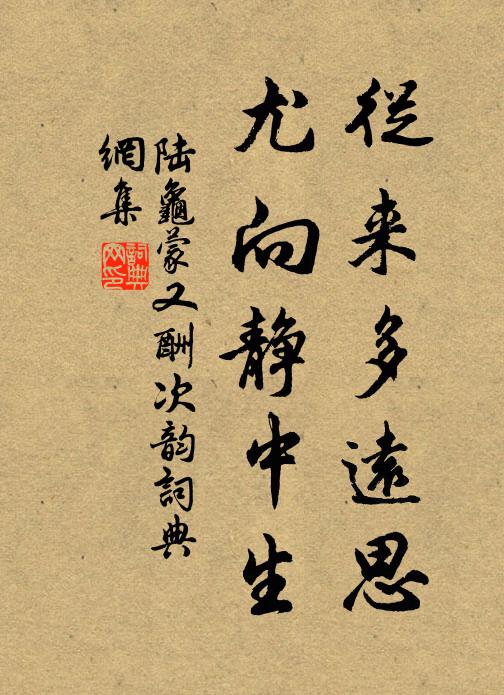 從来多遠思
尤向静中生
陆龜蒙又酬次韵詞典
網集
詞典
网印